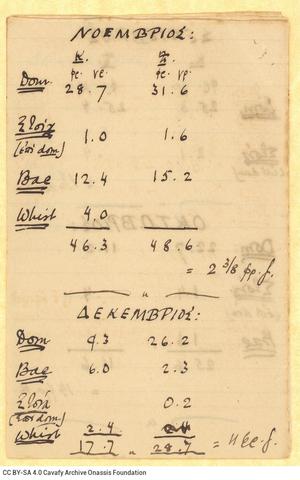 ΝΟΕΜΒΡΙΟΣ:
Κ. Π.
φς. γς. φς. γρ.
Dom. 28.7 31.6
Στοίχ 1.0 1.6
(ἐπὶ dom)
Bac 12.4 15.2
Whist 4.0
46.3 48.6
= 2 3/8 φρ. f.
ΔΕΚΕΜΒΡΙΟΣ:
Dom 9.3 26.2
Bac 6.0 2.3
Στοίχ 0.2
(ἐπὶ dom)
Whist 2.4
17.7 28.7
CC BY-SA 4.0 Cavafy Archive Onassis Foundation